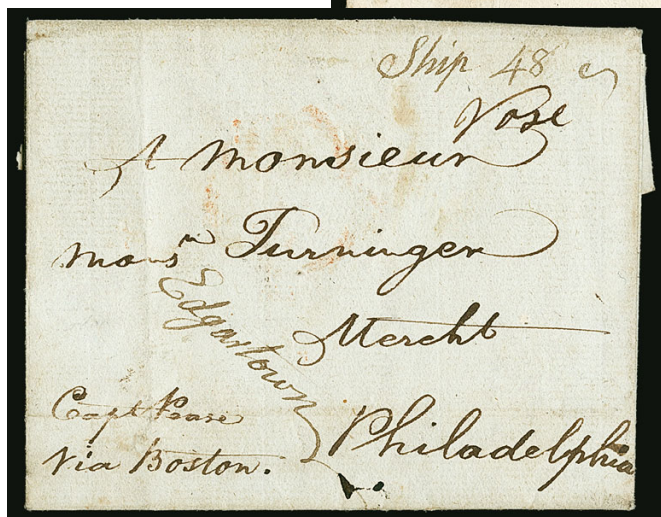 Ship 48
Vose
A Monsieur
Monsr Turninger
Edgartown
Mercht
Capt Pease
Via Boston.
Philadelphia